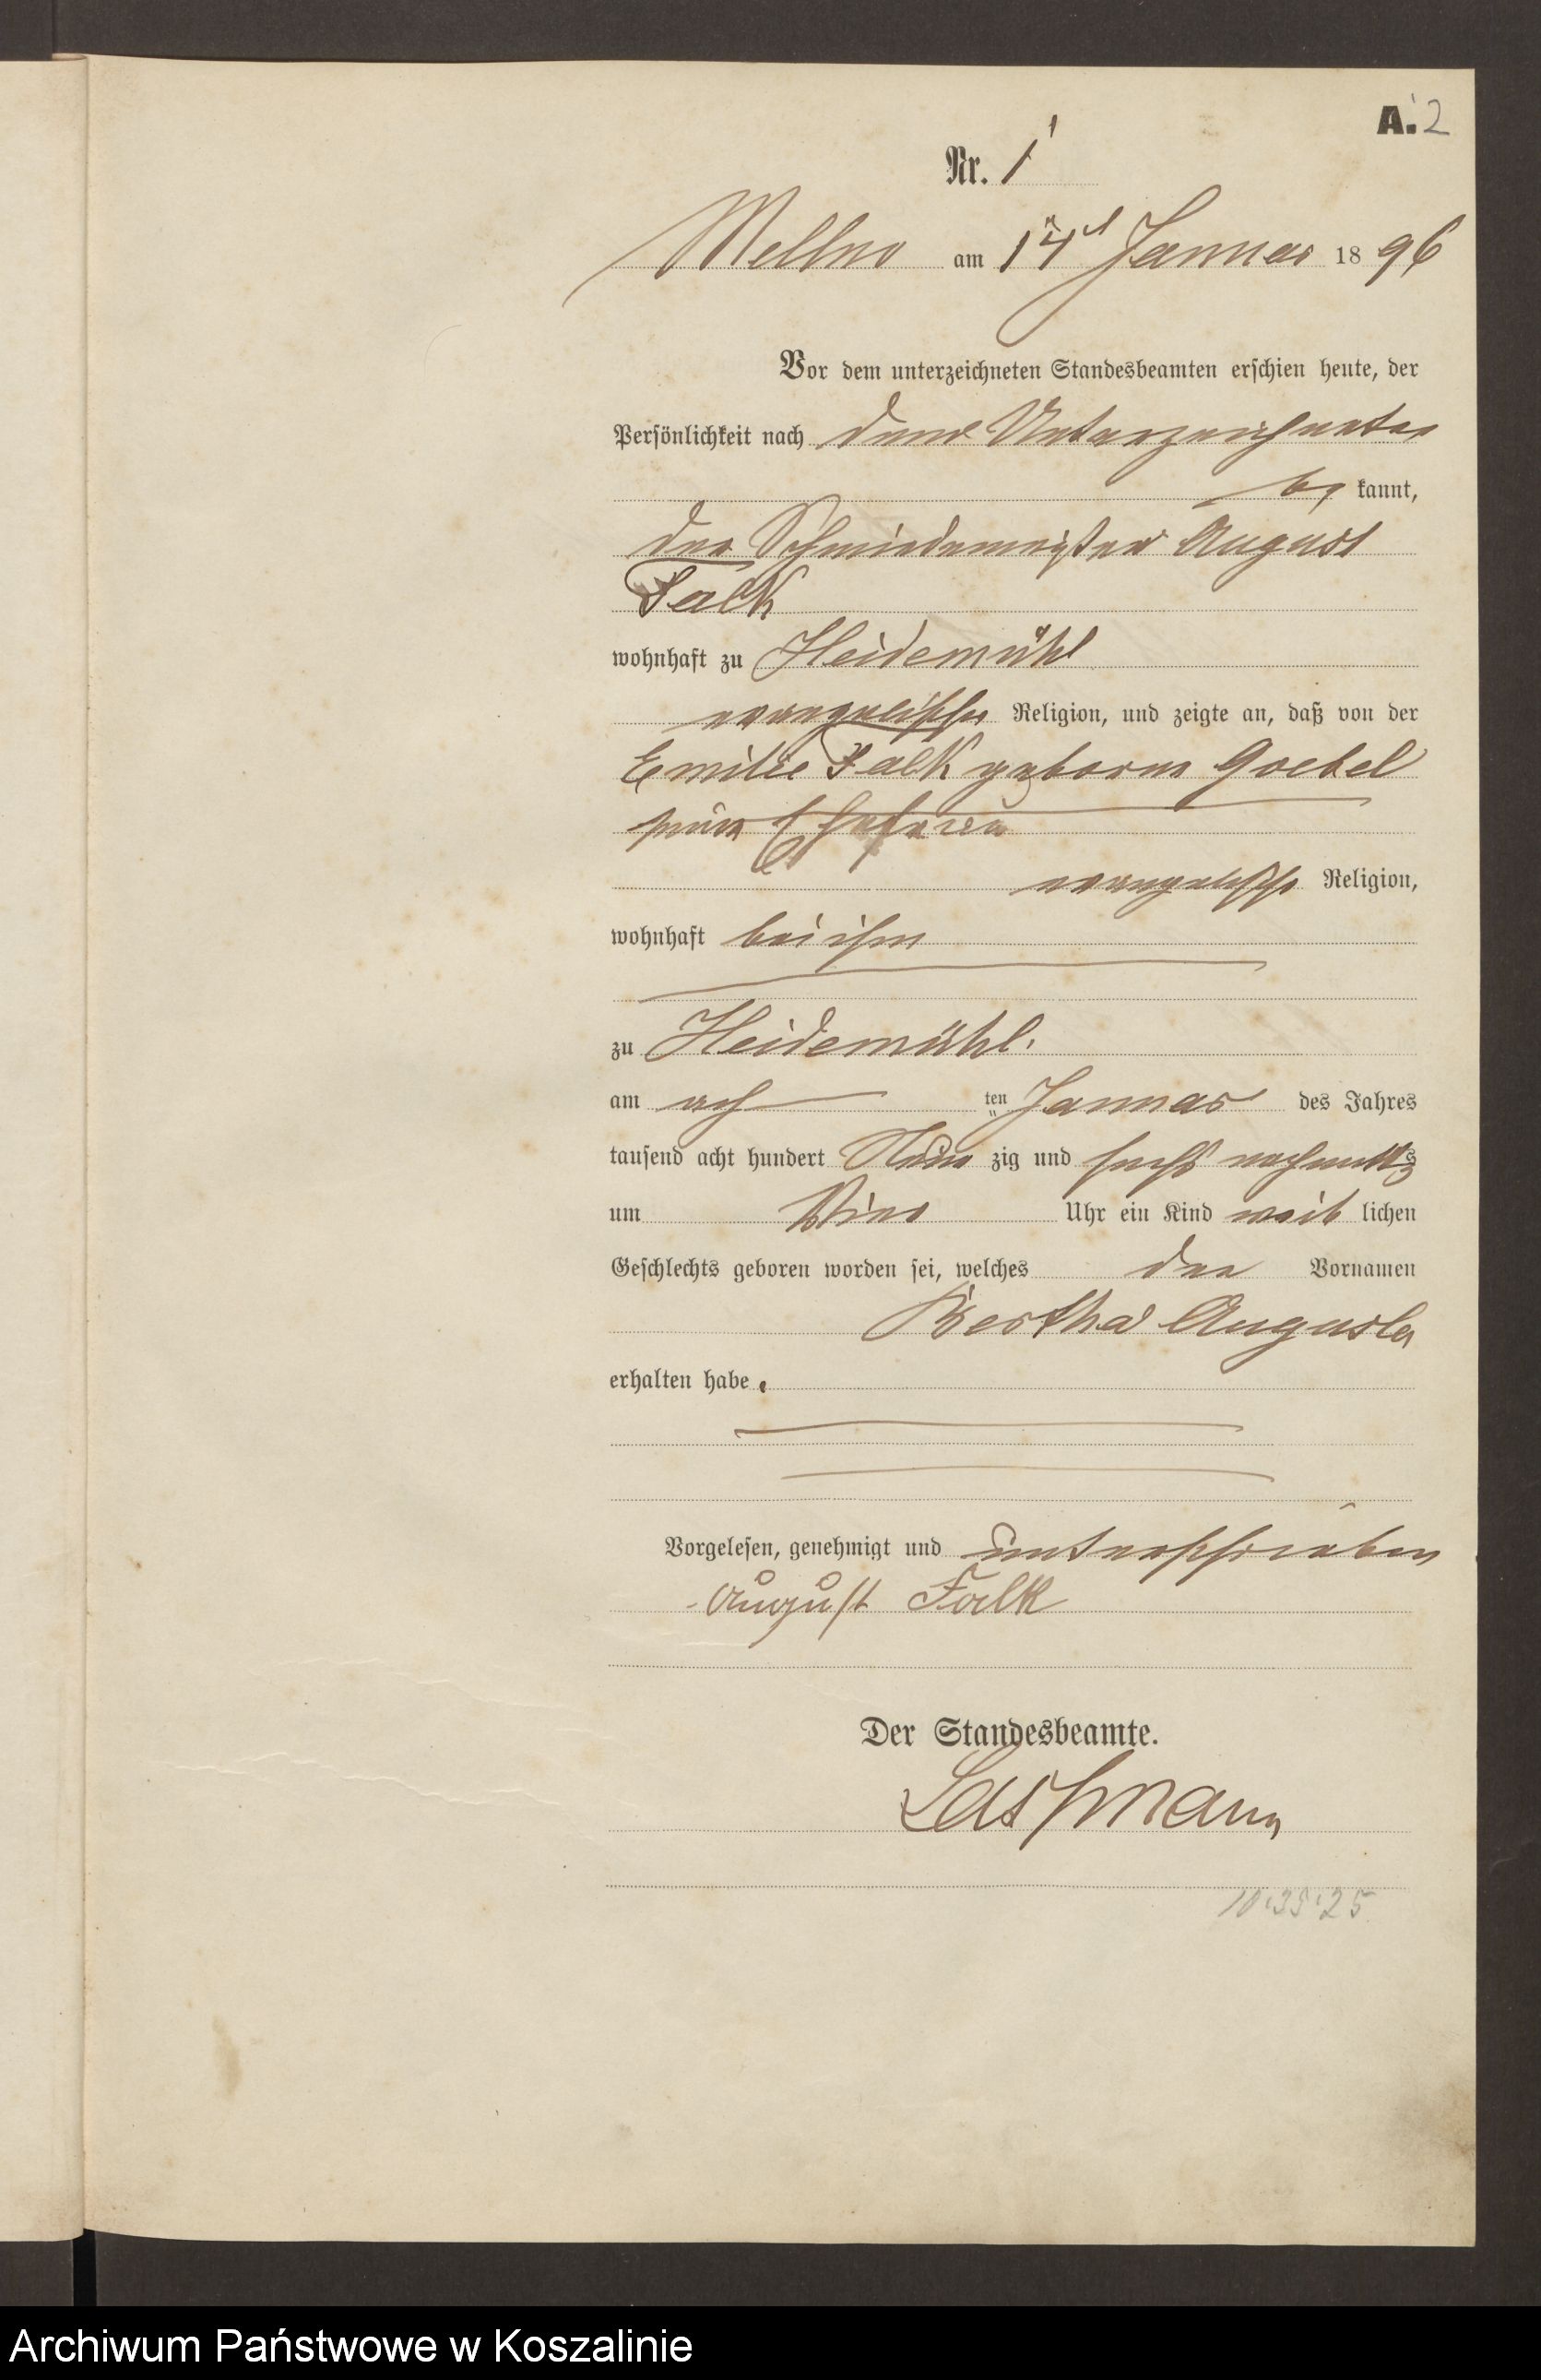 A. 2
Nr. 1
Mellno am 14 Januar 1896
Vor dem unterzeichneten Standesbeamten erschien heute, der
Persönlichkeit nach dem Unterzeichneten
be kannt,
der Schmiedemeister August
Falk
wohnhaft zu Heidemühl
evangelischer Religion, und zeigte an, daß von der
Emilie Falk geborne Goebel
seiner Ehefrau
evangelischer Religion,
wohnhaft bei ihm
zu Heidemühl.
am ach ten Januar des Jahres
tausend acht hundert Neun zig und sechs nachmittags
um Vier Uhr ein Kind weib lichen
Geschlechts geboren worden sei, welches die Vornamen
Bertha Augusta
erhalten habe.
Vorgelesen, genehmigt und unterschrieben
August Falk
Der Standesbeamte.
10:35:25
Archiwum Państwowe w Koszalinie